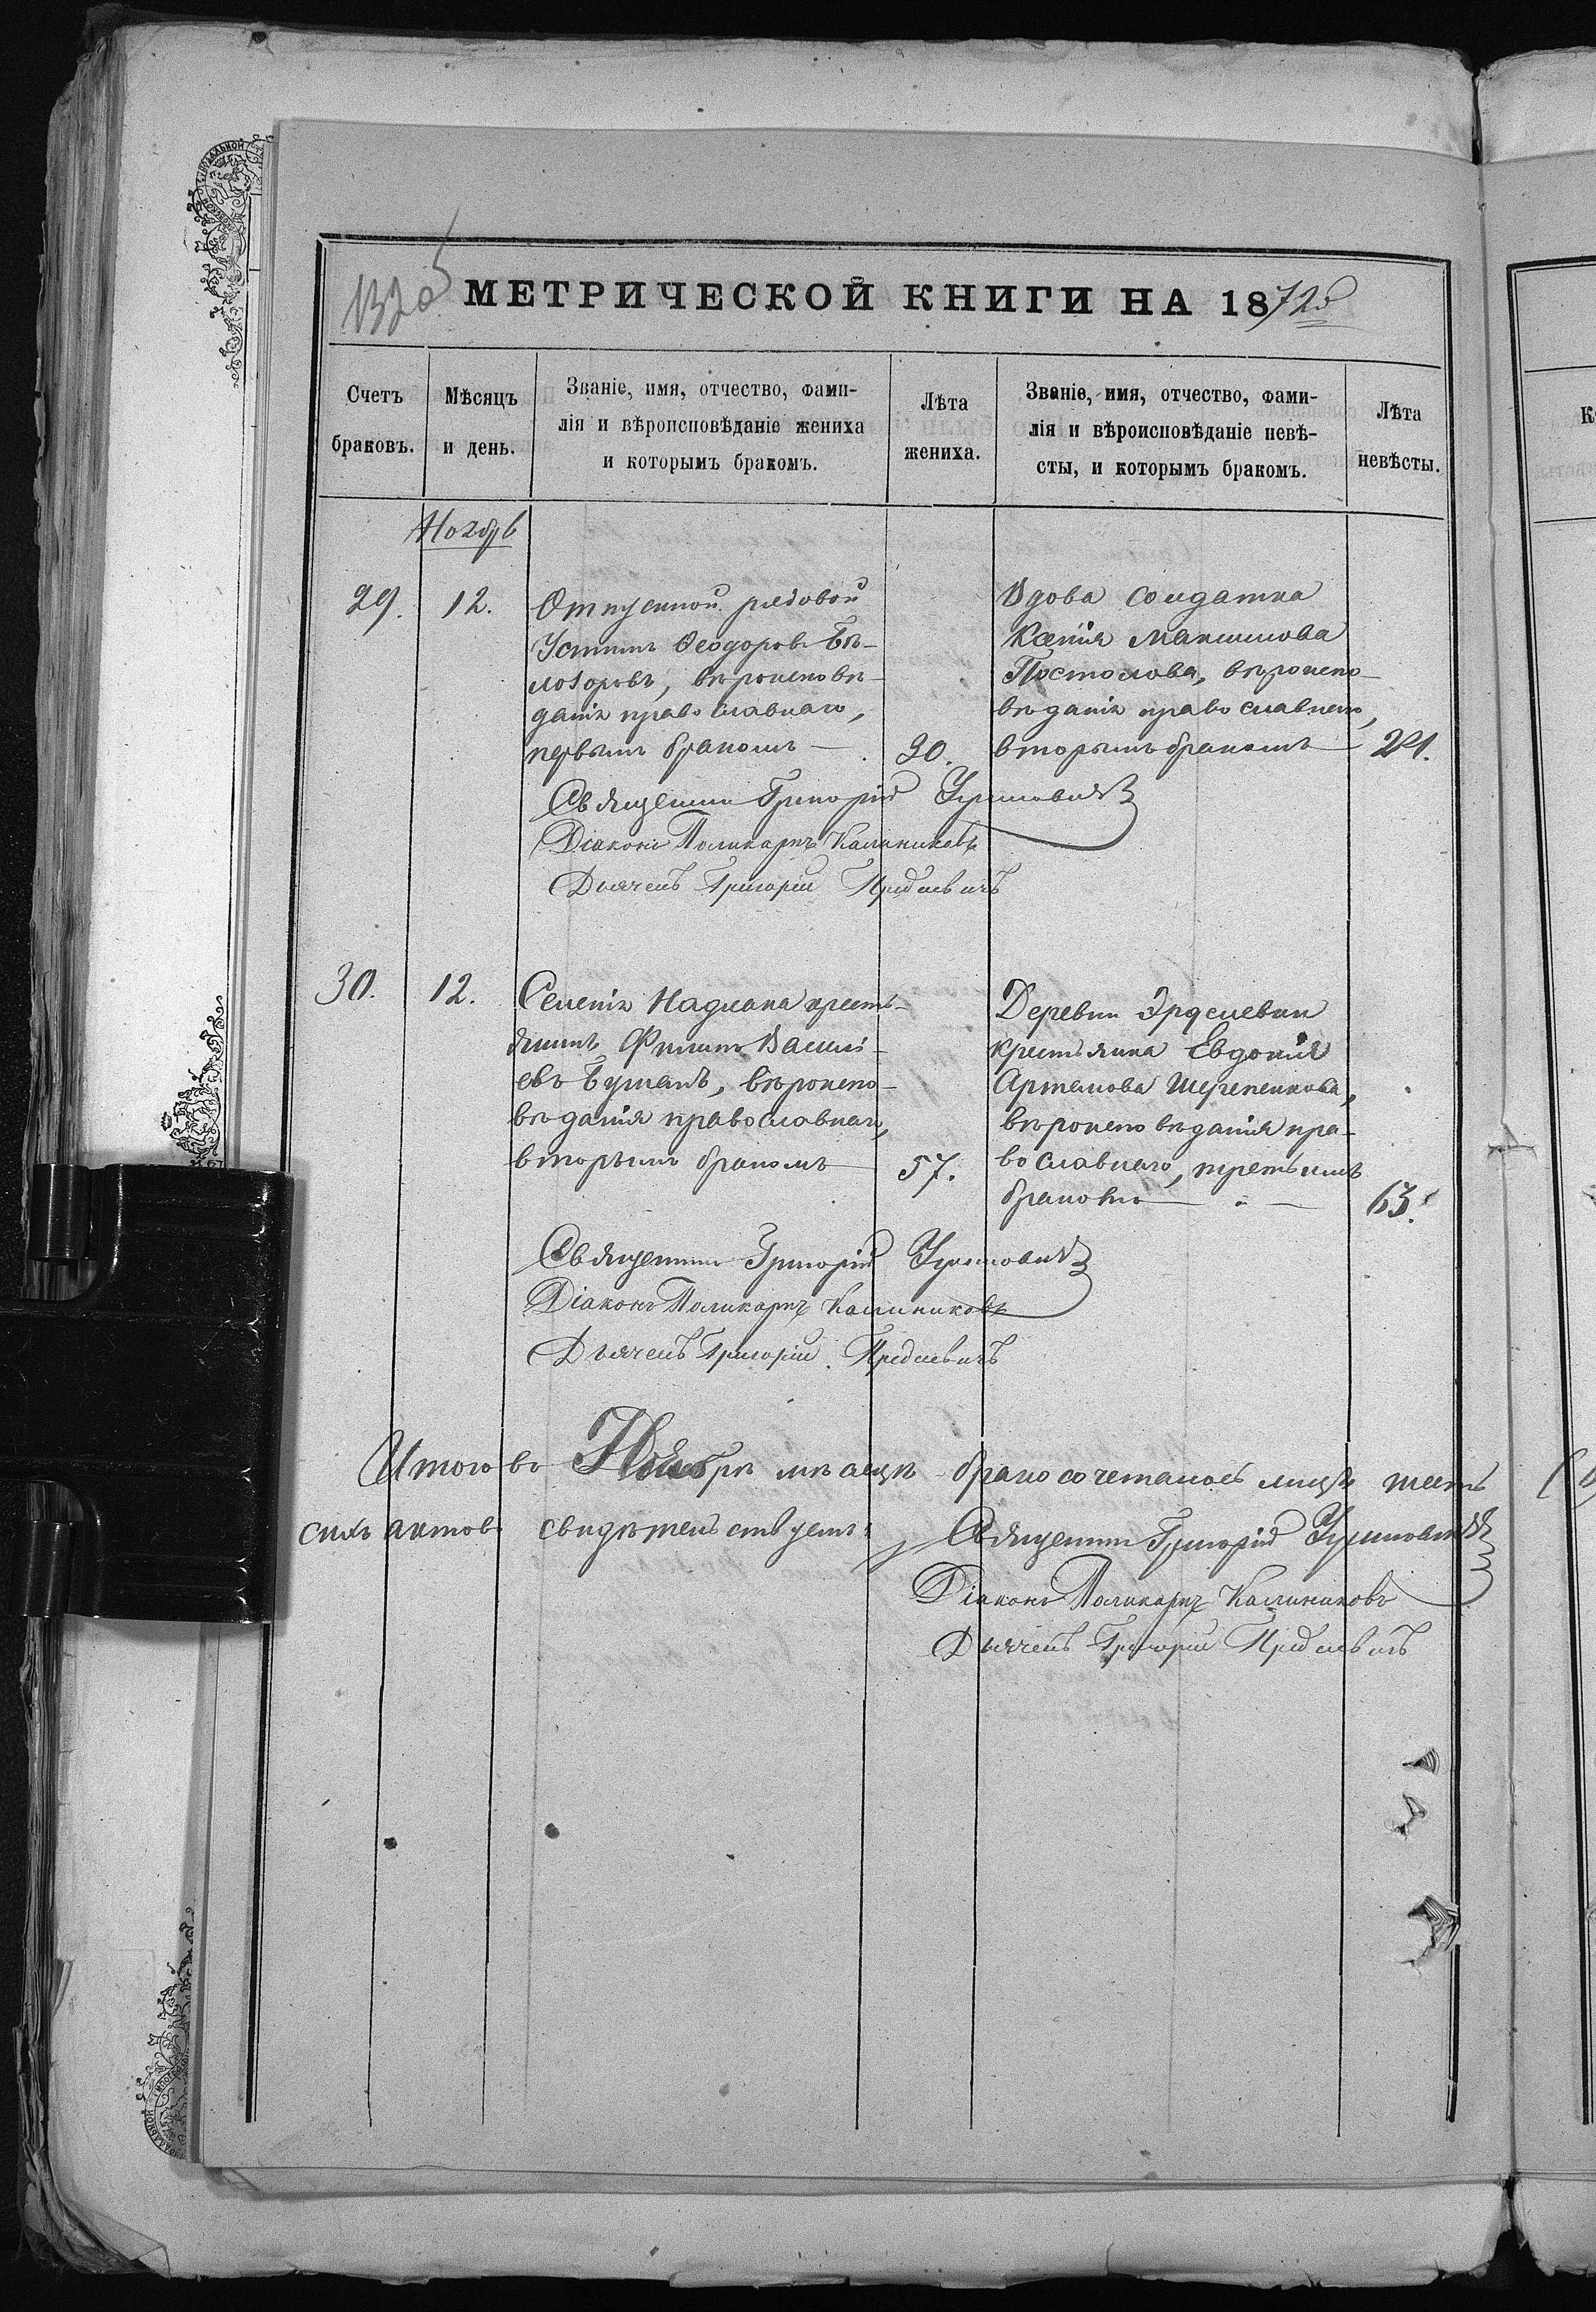 132об
МЕТРИЧЕСКОЙ КНИГИ НА 1872й
Счетъ браковъ.
Мѣсяцъ и день.
Званіе, имя, отчество, фами-
лія и вѣроисповѣданіе жениха
и которымъ бракомъ.
Лѣта жениха.
Званіе, имя, отчество, фами-
лія и вѣроисповѣданіе невѣ-
сты, и которымъ бракомъ.
Лѣта невѣсты.
Ноябрь
29. 12.
Отпускной рядовой
Устинъ Ѳеодоровъ Бѣ-
лозоровъ, вѣроисповѣ-
данія православнаго,
первымъ бракомъ — 30.
Вдова солдатка
Ксенія Максимова
Постолова, вѣроиспо-
вѣданія православнаго,
вторымъ бракомъ — 21.
Священникъ Григорій
Діаконъ Поликарпъ Калиниковъ
Дьячекъ Григорій
30. 12.
Селенія Надлака кресть-
янинъ Филипъ Василі-
евъ Буманъ, вѣроиспо-
вѣданія православнаго,
вторымъ бракомъ — 57.
Деревни Эрделевки
крестьянка Евдокія
Артемова Щерепенкова,
вѣроисповѣданія пра-
вославнаго, третьимъ
бракомъ — 63.
Священникъ Григорій
Діаконъ Поликарпъ Калиниковъ
Дьячекъ Григорій
Итого въ Ноябрѣ мѣсяцѣ бракосочеталось лицъ шесть
сихъ актовъ свидѣтельствуемъ: Священникъ Григорій
Діаконъ Поликарпъ Калиниковъ
Дьячекъ Григорій